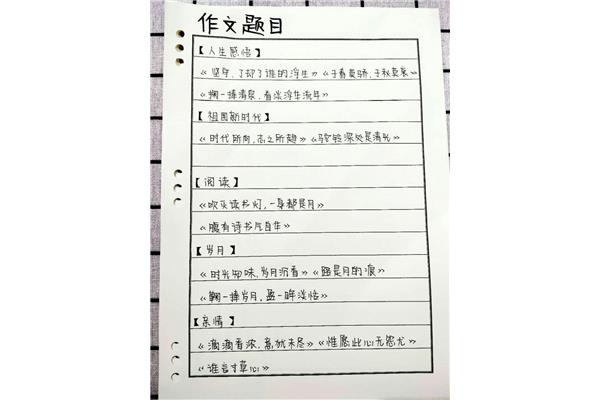 作文题目
【人生感悟】
《坚守,了却了谁的浮生》《于春卖骄,于秋卖衰》
《掬一捧清泉,看淡浮生流年》
【祖国新时代】
《时代所向,志之所趋》《骑驰深处是清光》
【阅读】
《吹灭读书灯,一身都是月》
《腹有诗书气自华》
【岁月】
《时光知味,岁月沉香》《路是月的痕》
《鞠一捧岁月,盈一眸淡恬》
【亲情】
《滴滴香浓,意犹未尽》《惟愿此心无怨尤》
《谁言寸草心》